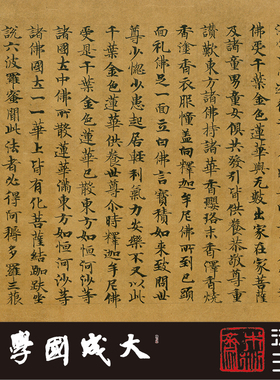 佛受千葉金色蓮華與无數出家在家菩薩
及諸童男童女俱共發引皆供養恭敬尊重
讚歎東方諸佛持諸華香瓔珞末香澤香燒
香塗香衣服幢蓋向釋迦牟尼佛所到已頭
面礼佛足一面立白佛言寶積如來致問世
尊少惱少患起居輕利氣力安樂不又以此
千葉金色蓮華供養世尊尒時釋迦牟尼佛
受是千葉金色蓮華已散東方如恒河沙等
諸國土中佛所散蓮華滿東方如恒河沙等
諸佛國土一一華上皆有化菩薩結跏趺坐
說六波羅蜜聞此法者必得阿耨多羅三藐
大成國學